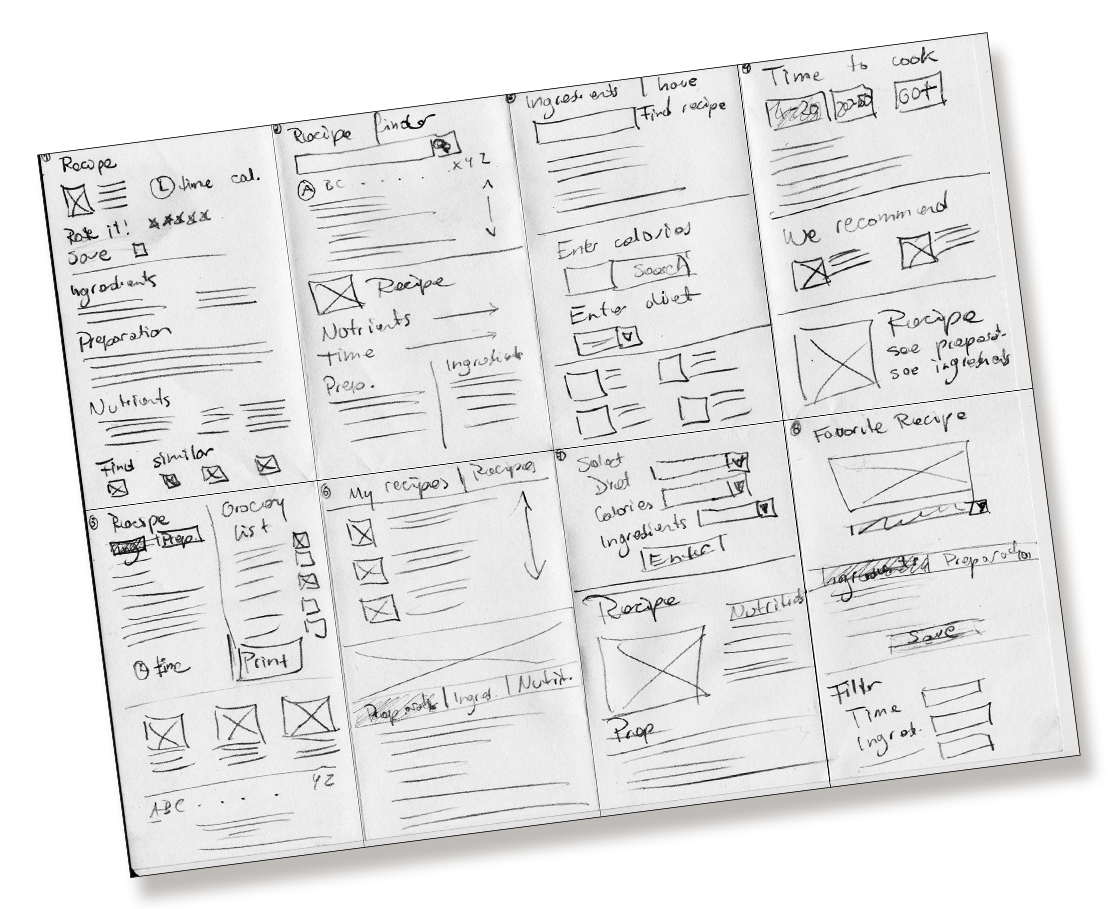 1
Recipe
time cal.
Rate it!
Save
Ingredients
Preparation
Nutrients
Find similar
2
Recipe finder
XYZ
A BC . . . . .
Recipe
Nutrients
Time
Prep.
Ingredients
3
Ingredients I have
Find recipe
Enter calories
Search
Enter diet
4
Time to cook
20-30
60+
We recommend
Recipe
see preparat.
see ingredients
5
Recipe
Ingr. Prep.
Grocery
list
time
Print
YZ
ABC . . . .
6
My recipes Recipes
Preparatio Ingred. Nutrit.
7
Select
Diet
Calories
Ingredients
Enter
Recipe
Nutritients
Prep
8
Favorite Recipe
Ingredients Preparation
Save
Filtr
Time
Ingred.